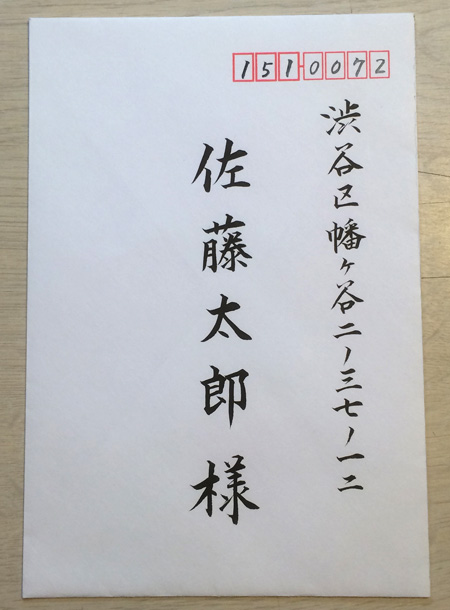 1510072
渋谷区幡ヶ谷二ノ三七ノ一二
佐藤太郎様